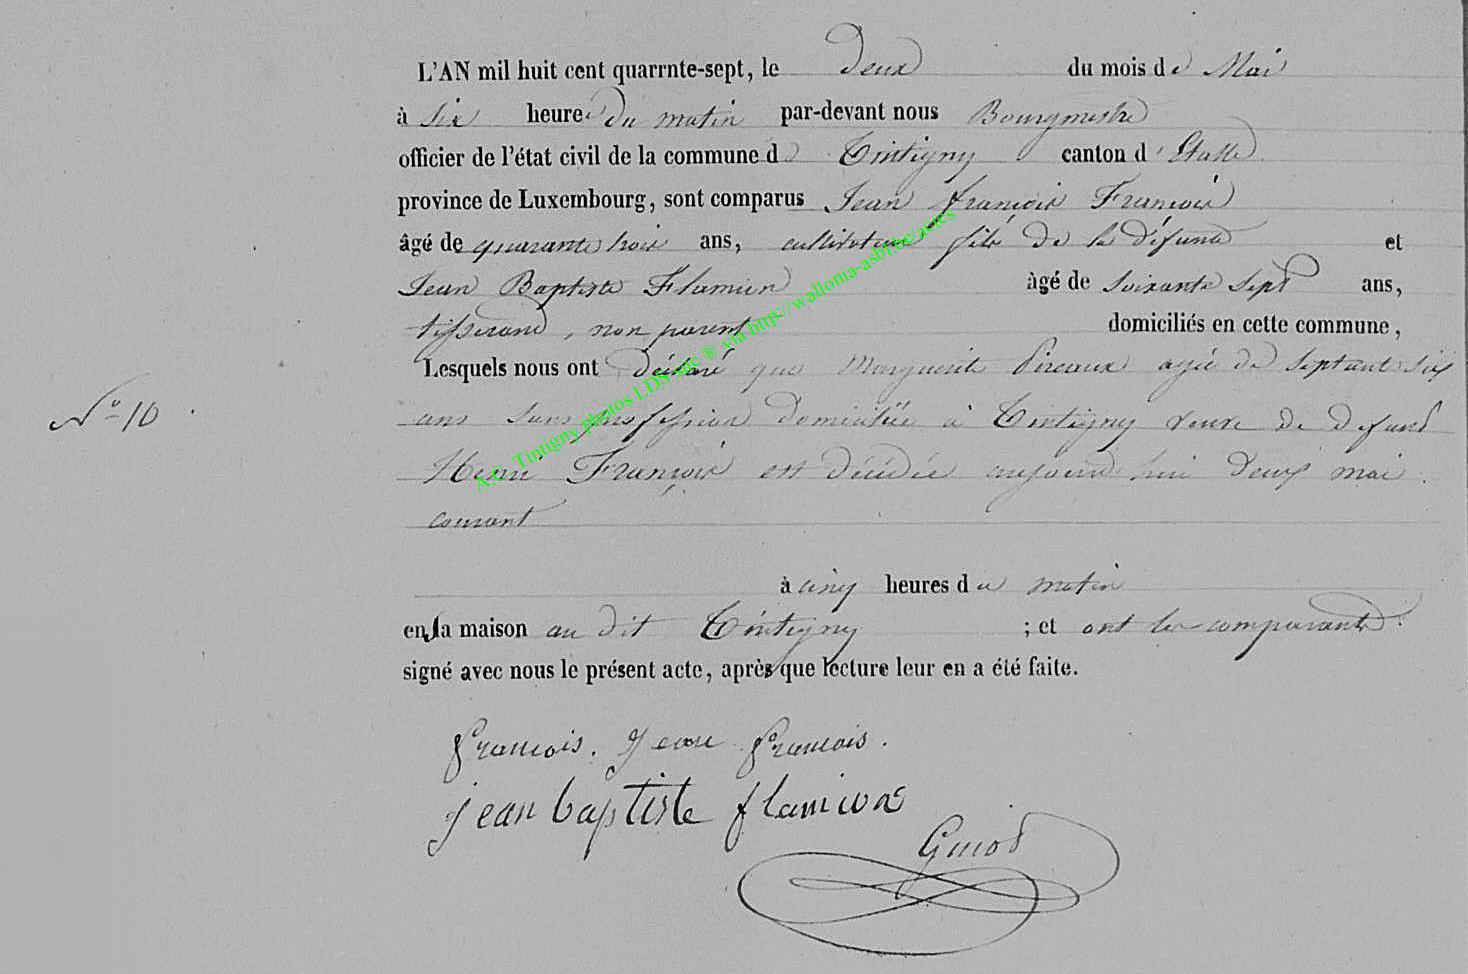 L'AN mil huit cent quarrnte-sept, le deux du mois de Mai
à six heures du matin par-devant nous Bourgmestre
officier de l'état civil de la commune de Tintigny canton d'Etalle
province de Luxembourg, sont comparus Jean françois François
âgé de quarante trois ans, cultivateur fils de la défunte et
Jean Baptiste Flamion âgé de soixante sept ans,
tisserand, non parent domiciliés en cette commune,
Lesquels nous ont déclaré que Marguerite Pireaux agée de septante six
N° 10
ans sans profession domiciliée à Tintigny veuve de defunt
Henri François est décédée aujourd'hui deux mai
courant
à cinq heures du matin
en sa maison au dit Tintigny ; et ont les comparants
signé avec nous le présent acte, après que lecture leur en a été faite.
françois. Jean françois.
jean baptiste flamion
Guiot
A.C. Tintigny photos LDS inc ® via http://wallonia-asbl.be/actes